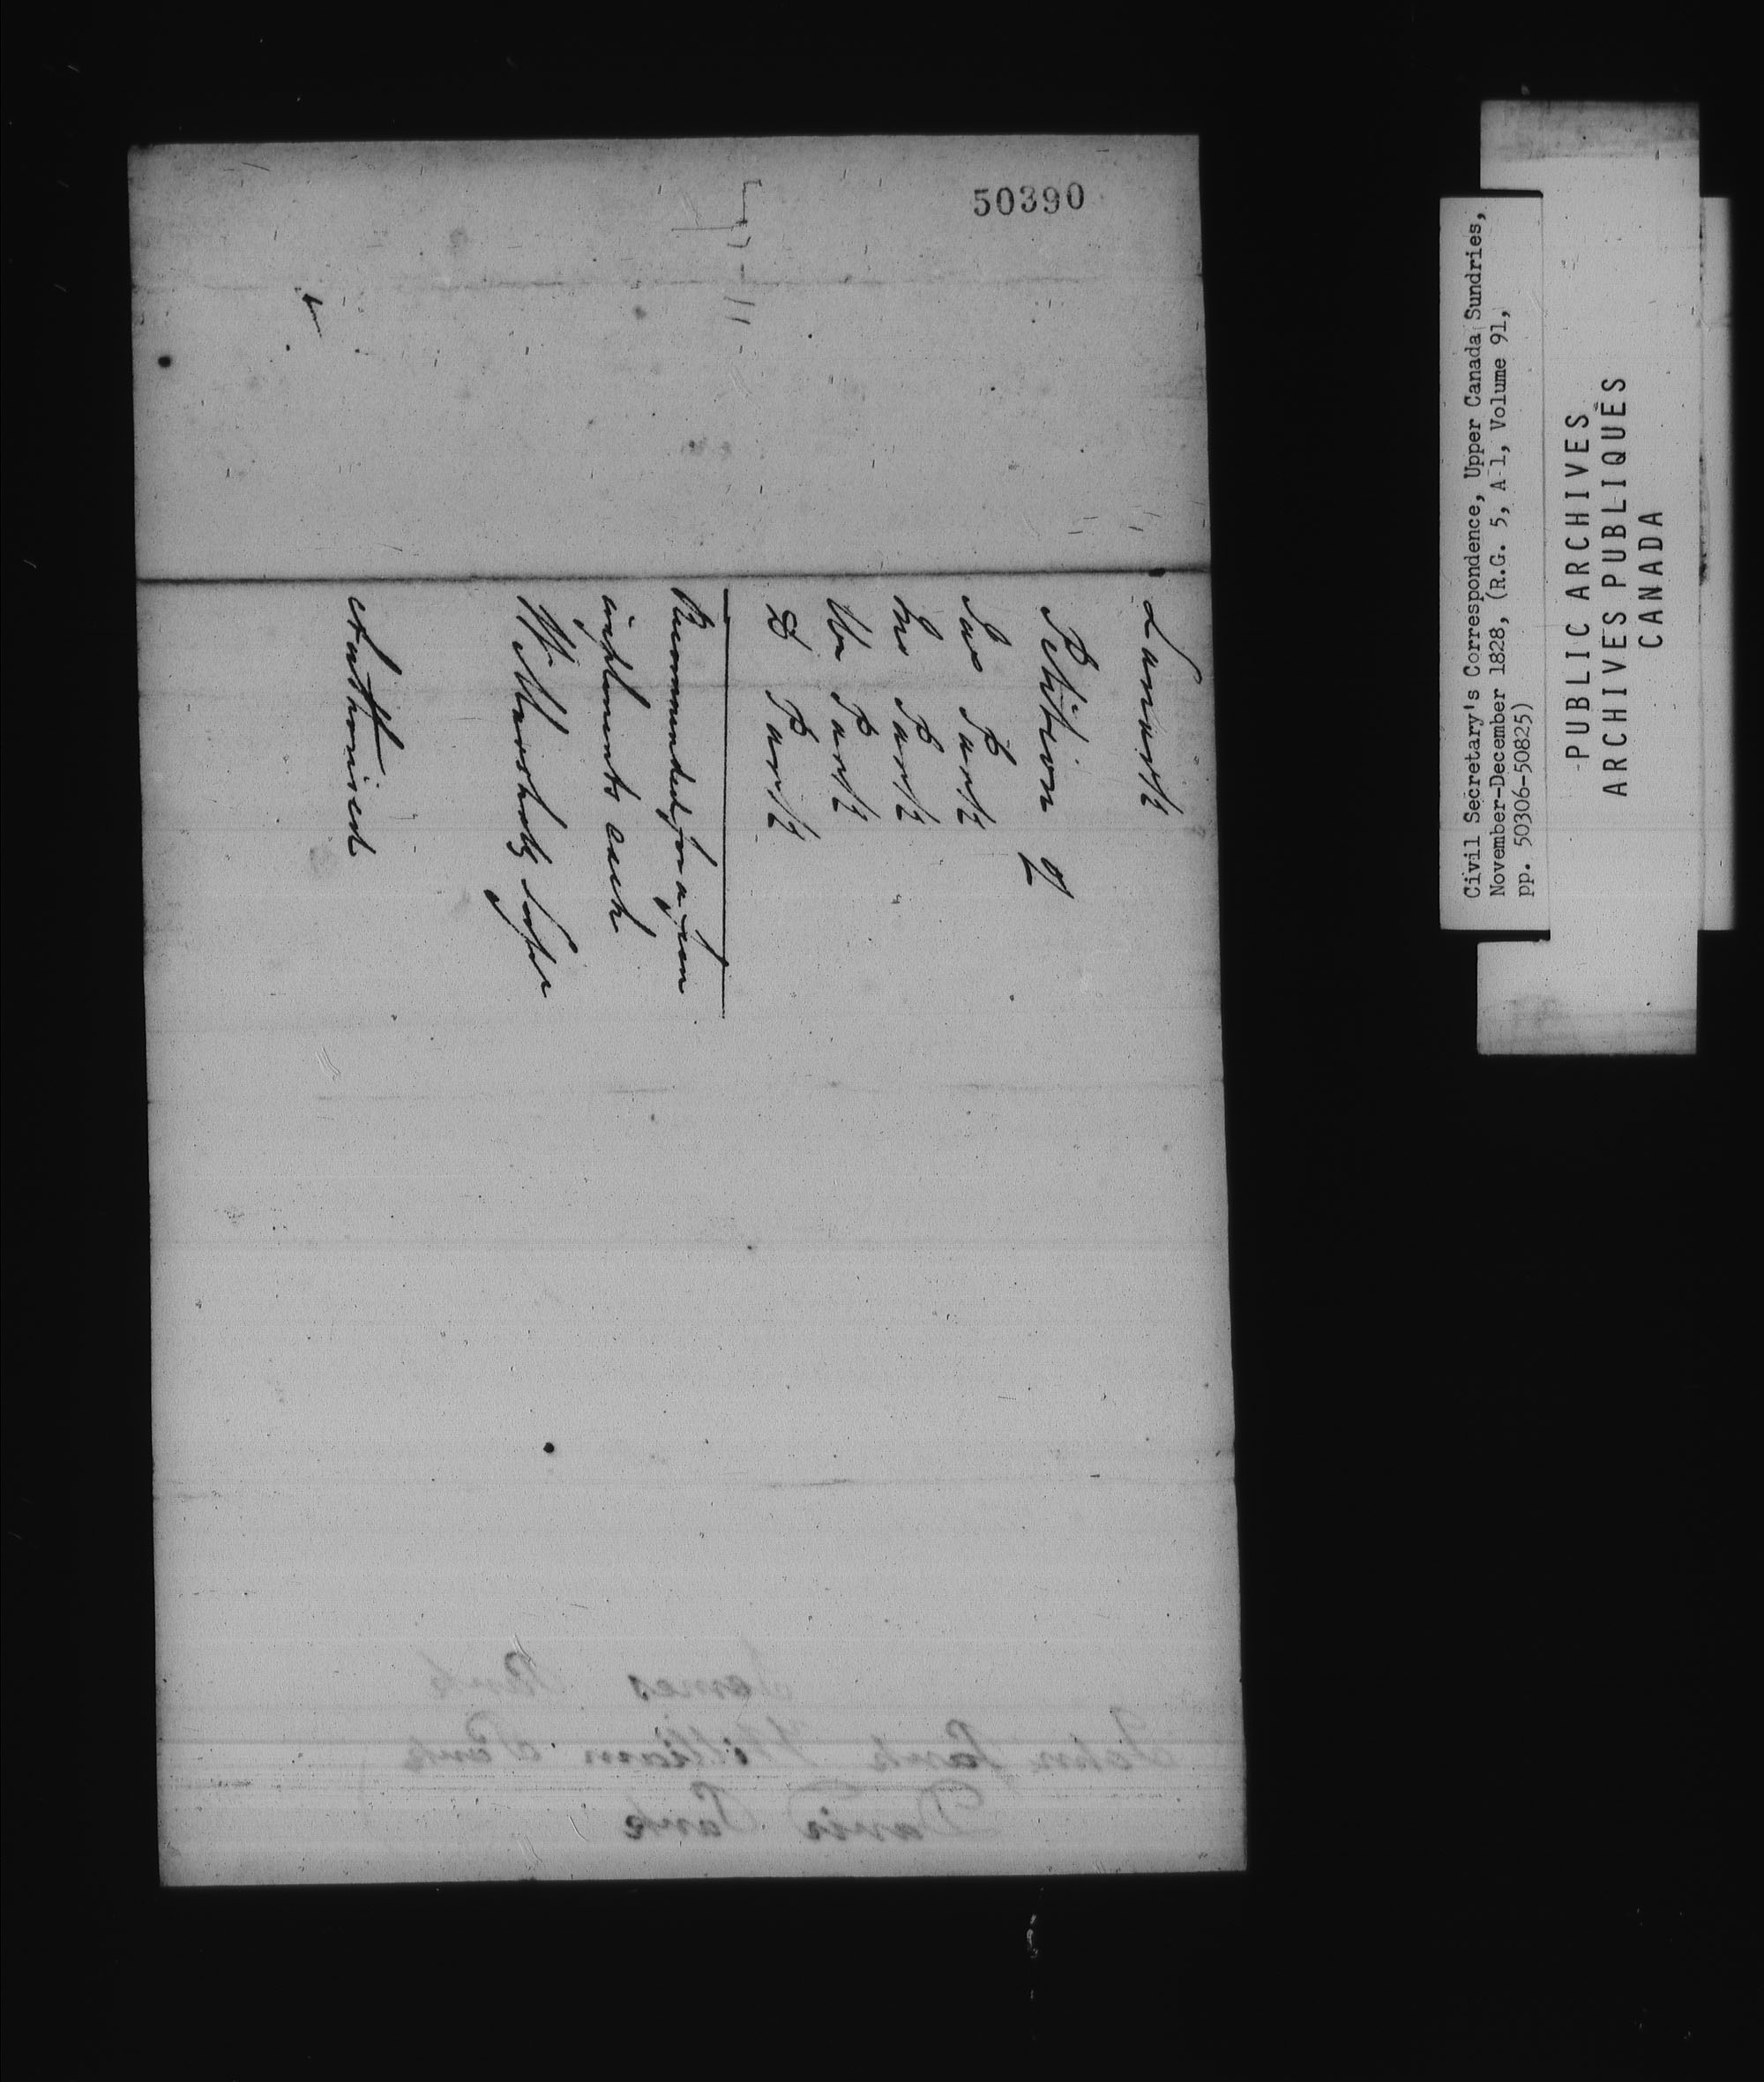 50390
Lanark
Petition of
Jas Park
Jno Park
Wm Park
D Park
Recommended for a few
implements each
W. Marshall, Supr
Authorised
James Park
John Park William Park
David Park
Civil Secretary's Correspondence, Upper Canada Sundries,
November-December 1828, (R.G. 5, A 1, Volume 91,
pp. 50306-50825)
PUBLIC ARCHIVES
ARCHIVES PUBLIQUES
CANADA